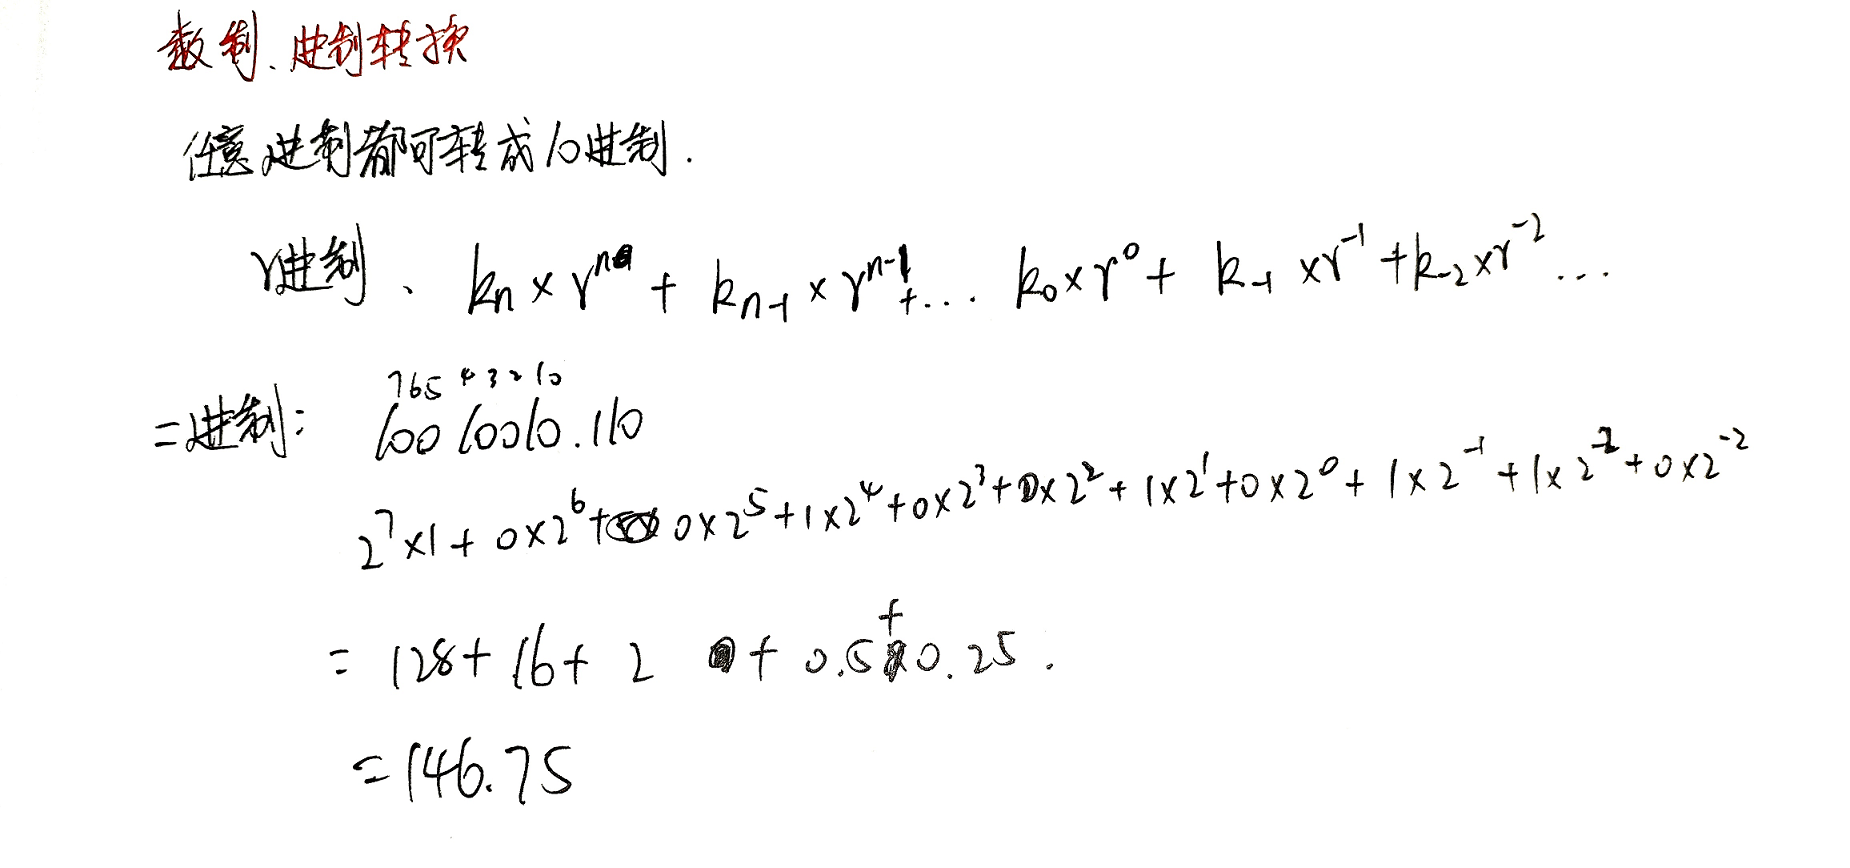 数制、进制转换
任意进制都可转成10进制.
r进制、 kₙ×rⁿ + kₙ₋₁×rⁿ⁻¹+... k₀×r⁰+ k₋₁×r⁻¹+k₋₂×r⁻²...
76543210
二进制: 10010010.110
2⁷×1+0×2⁶+0×2⁵+1×2⁴+0×2³+0×2²+1×2¹+0×2⁰+1×2⁻¹+1×2⁻²+0×2⁻²
=128+16+2+0.5+0.25.
=146.75